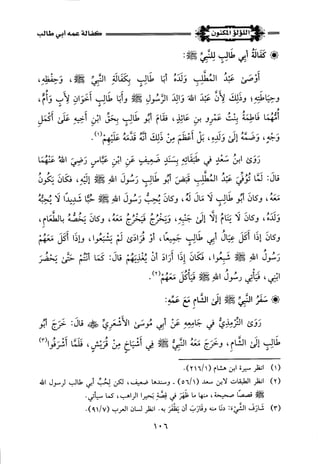 اللؤلؤ المكنون
كفالة عمه أبي طالب
كَفَالَةُ أَبِي طَالِبٍ لِلنَّبِيِّ ﷺ:
أَوْصَى عَبْدُ المُطَّلِبِ وَلَدَهُ أَبَا طَالِبٍ بِكَفَالَةِ النَّبِيِّ ﷺ، وَحِفْظِهِ،
وَحِيَاطَتِهِ، وَذَلِكَ لِأَنَّ عَبْدَ اللهِ وَالِدَ الرَّسُولِ ﷺ وَأَبَا طَالِبٍ أَخَوَانِ لِأَبٍ وَأُمٍّ،
أُمُّهُمَا فَاطِمَةُ بِنْتُ عَمْرِو بنِ عَائِذٍ، فَقَامَ أَبُو طَالِبٍ بِحَقِّ ابْنِ أَخِيهِ عَلَى أَكْمَلِ
وَجْهٍ، وَضَمَّهُ إِلَى وَلَدِهِ، بَلْ أَعْظَمَ مِنْ ذَلِكَ أَنَّهُ قَدَّمَهُ عَلَيْهِمْ(١).
رَوَى ابنُ سَعْدٍ فِي طَبَقَاتِهِ بِسَنَدٍ ضَعِيفٍ عَنِ ابْنِ عَبَّاسٍ رَضِيَ اللهُ عَنْهُمَا
قَالَ: لَمَّا تُوُفِّيَ عَبْدُ المُطَّلِبِ قَبَضَ أَبُو طَالِبٍ رَسُولَ اللهِ ﷺ إِلَيْهِ، فَكَانَ يَكُونُ
مَعَهُ، وَكَانَ أَبُو طَالِبٍ لَا مَالَ لَهُ، وَكَانَ يُحِبُّ رَسُولَ اللهِ ﷺ حُبًّا شَدِيدًا لَا يُحِبُّهُ
وَلَدَهُ، وَكَانَ لَا يَنَامُ إِلَّا إِلَى جَنْبِهِ، وَيَخْرُجُ فَيَخْرُجُ مَعَهُ، وَكَانَ يَخُصُّهُ بِالطَّعَامِ،
وَكَانَ إِذَا أَكَلَ عِيَالُ أَبِي طَالِبٍ جَمِيعًا، أَوْ فُرَادَى لَمْ يَشْبَعُوا، وَإِذَا أَكَلَ مَعَهُمْ
رَسُولُ اللهِ ﷺ شَبِعُوا، فَكَانَ إِذَا أَرَادَ أَنْ يُغَدِّيَهُمْ قَالَ: كَمَا أَنْتُمْ حَتَّى يَحْضُرَ
ابْنِي، فَيَأْتِي رَسُولُ اللهِ ﷺ فَيَأْكُلُ مَعَهُمْ(٢).
سَفَرُ النَّبِيِّ ﷺ إِلَى الشَّامِ مَعَ عَمِّهِ:
رَوَى التِّرْمِذِيُّ فِي جَامِعِهِ عَنْ أَبِي مُوسَى الأَشْعَرِيِّ ﷺ قَالَ: خَرَجَ أَبُو
طَالِبٍ إِلَى الشَّامِ، وَخَرَجَ مَعَهُ النَّبِيُّ ﷺ فِي أَشْيَاخٍ مِنْ قُرَيْشٍ، فَلَمَّا أَشْرَفُوا(٣)
(١) انظر سيرة ابن هشام (٢١٦/١).
(٢) انظر الطبقات لابن سعد (٥٦/١). وسندها ضعيف، لكن لِحُبِّ أبي طالب لرسول الله
ﷺ قصصًا صحيحة، منها ما ظهر في قصة بحيرا الراهب، كما سيأتي.
(٣) شَارَفَ الشَّيْءَ: دنا منه وقارَبَ أن يَظْفَرَ به. انظر لسان العرب (٩١/٧).
١٠٦